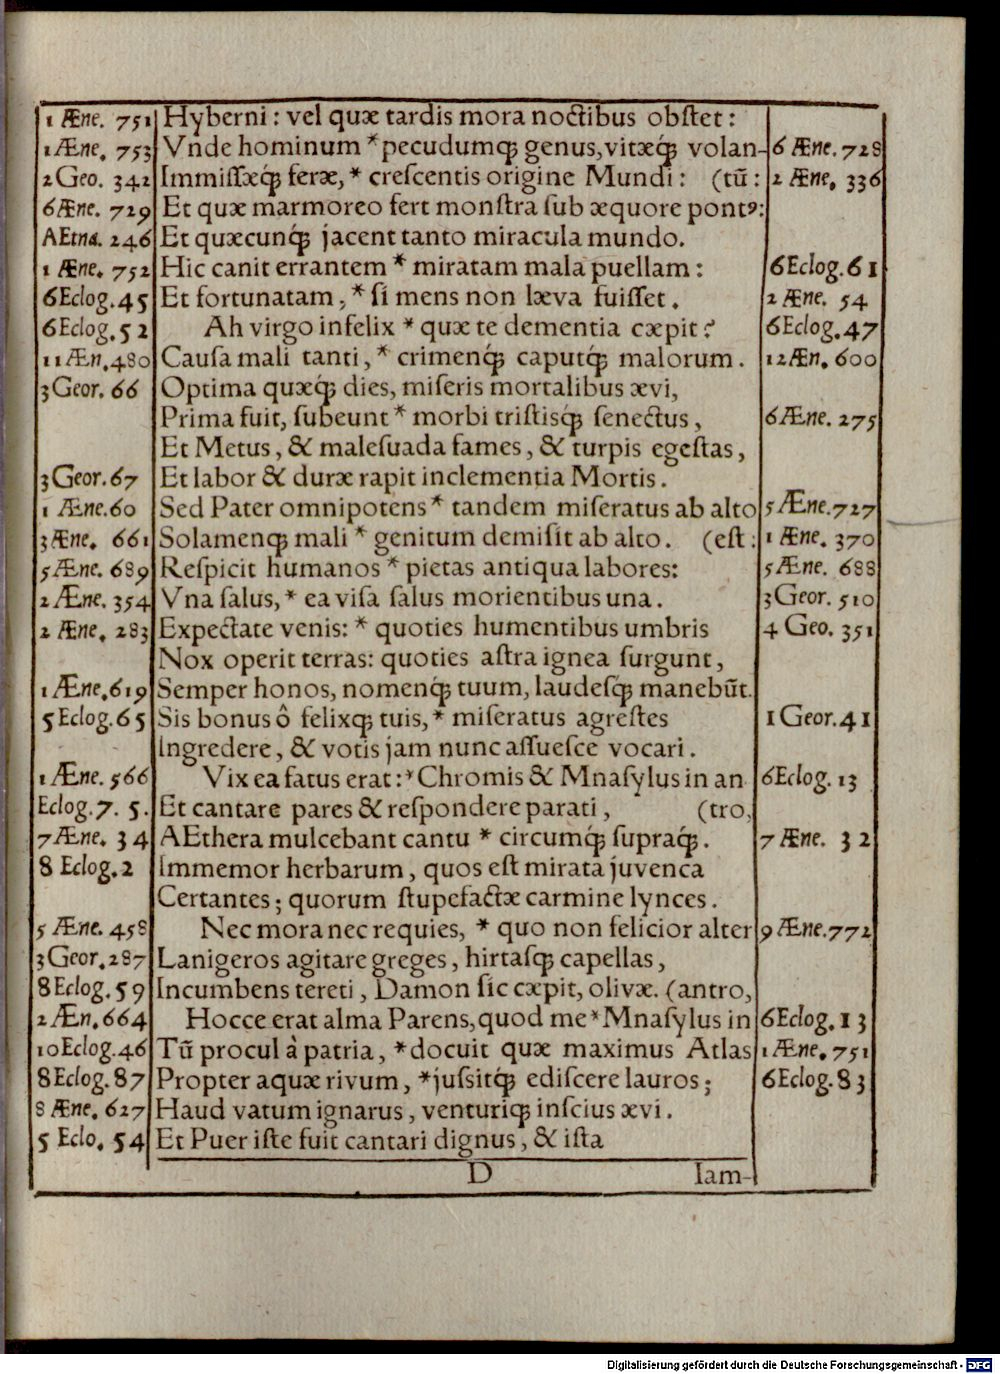 1 Æne. 751 Hyberni: vel quæ tardis mora noctibus obſtet:
1 Æne. 753 Vnde hominum * pecudumq́; genus, vitæq́; volan- 6 Æne. 728
2 Geo. 342 Immiſſæq́; feræ, * creſcentis origine Mundi: (tū: 2 Æne. 336
6 Æne. 729 Et quæ marmoreo fert monſtra ſub æquore pontꝰ:
AEtna. 246 Et quæcunq́; jacent tanto miracula mundo.
1 Æne. 752 Hic canit errantem * miratam mala puellam: 6 Eclog. 61
6 Eclog. 45 Et fortunatam, * ſi mens non læva fuiſſet. 2 Æne. 54
6 Eclog. 52 Ah virgo infelix * quæ te dementia cæpit? 6 Eclog. 47
11 Æn. 480 Cauſa mali tanti, * crimenq́; caputq́; malorum. 12 Æn. 600
3 Geor. 66 Optima quæq́; dies, miſeris mortalibus ævi,
Prima fuit, ſubeunt * morbi triſtisq́; ſenectus, 6 Æne. 275
Et Metus, & maleſuada fames, & turpis egeſtas,
3 Geor. 67 Et labor & duræ rapit inclementia Mortis.
1 Æne. 60 Sed Pater omnipotens * tandem miſeratus ab alto 5 Æne. 727
3 Æne. 661 Solamenq; mali * genitum demiſit ab alto. (eſt: 1 Æne. 370
5 Æne. 689 Reſpicit humanos * pietas antiqua labores: 5 Æne. 688
2 Æne. 354 Vna ſalus, * ea viſa ſalus morientibus una. 3 Geor. 510
2 Æne. 283 Expectate venis: * quoties humentibus umbris 4 Geo. 351
Nox operit terras: quoties aſtra ignea ſurgunt,
1 Æne. 619 Semper honos, nomenq́; tuum, laudeſq́; manebūt.
5 Eclog. 65 Sis bonus ô felixq; tuis, * miſeratus agreſtes 1 Geor. 41
Ingredere, & votis jam nunc aſſueſce vocari.
1 Æne. 566 Vix ea fatus erat: * Chromis & Mnaſylus in an 6 Eclog. 13
Eclog. 7. 5. Et cantare pares & reſpondere parati, (tro,
7 Æne. 34 AEthera mulcebant cantu * circumq́; ſupraq́;. 7 Æne. 32
8 Eclog. 2 Immemor herbarum, quos eſt mirata juvenca
Certantes; quorum ſtupefactæ carmine lynces.
5 Æne. 458 Nec mora nec requies, * quo non felicior alter 9 Æne. 772
3 Geor. 287 Lanigeros agitare greges, hirtaſq; capellas,
8 Eclog. 59 Incumbens tereti, Damon ſic cæpit, olivæ. (antro,
2 Æn. 664 Hocce erat alma Parens, quod me * Mnaſylus in 6 Eclog. 13
10 Eclog. 46 Tū procul à patria, * docuit quæ maximus Atlas 1 Æne. 751
8 Eclog. 87 Propter aquæ rivum, * juſsitq́; ediſcere lauros; 6 Eclog. 83
8 Æne. 627 Haud vatum ignarus, venturiq; inſcius ævi.
5 Eclo. 54 Et Puer iſte fuit cantari dignus, & iſta
D Iam-
Digitalisierung gefördert durch die Deutsche Forschungsgemeinschaft - DFG